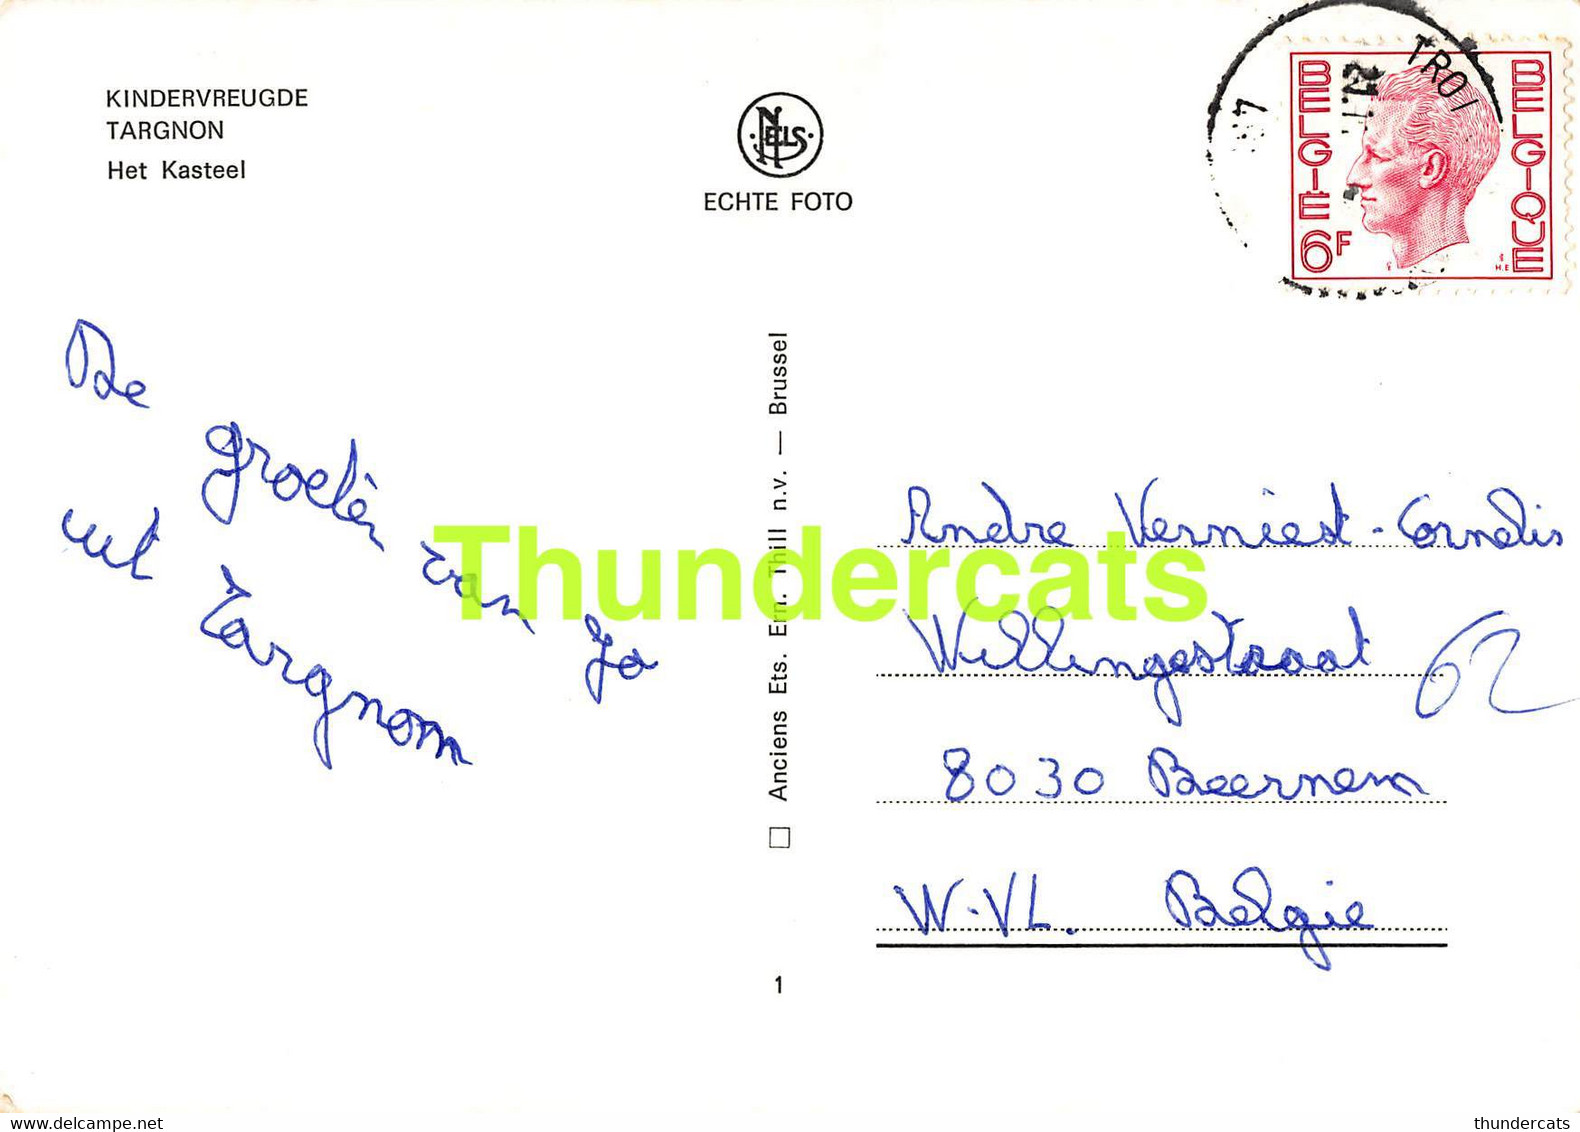 KINDERVREUGDE
TARGNON
Het Kasteel
NELS
ECHTE FOTO
TROI
BELGIË
BELGIQUE
6F
H.E
De groeten van Jo
uit Targnom
Anciens Ets. Ern. Thill n.v. — Brussel
Thundercats
Andre Verniest-Cornelis
Willingestraat 62
8030 Beernem
W.VL. Belgie
1
www.delcampe.net
thundercats